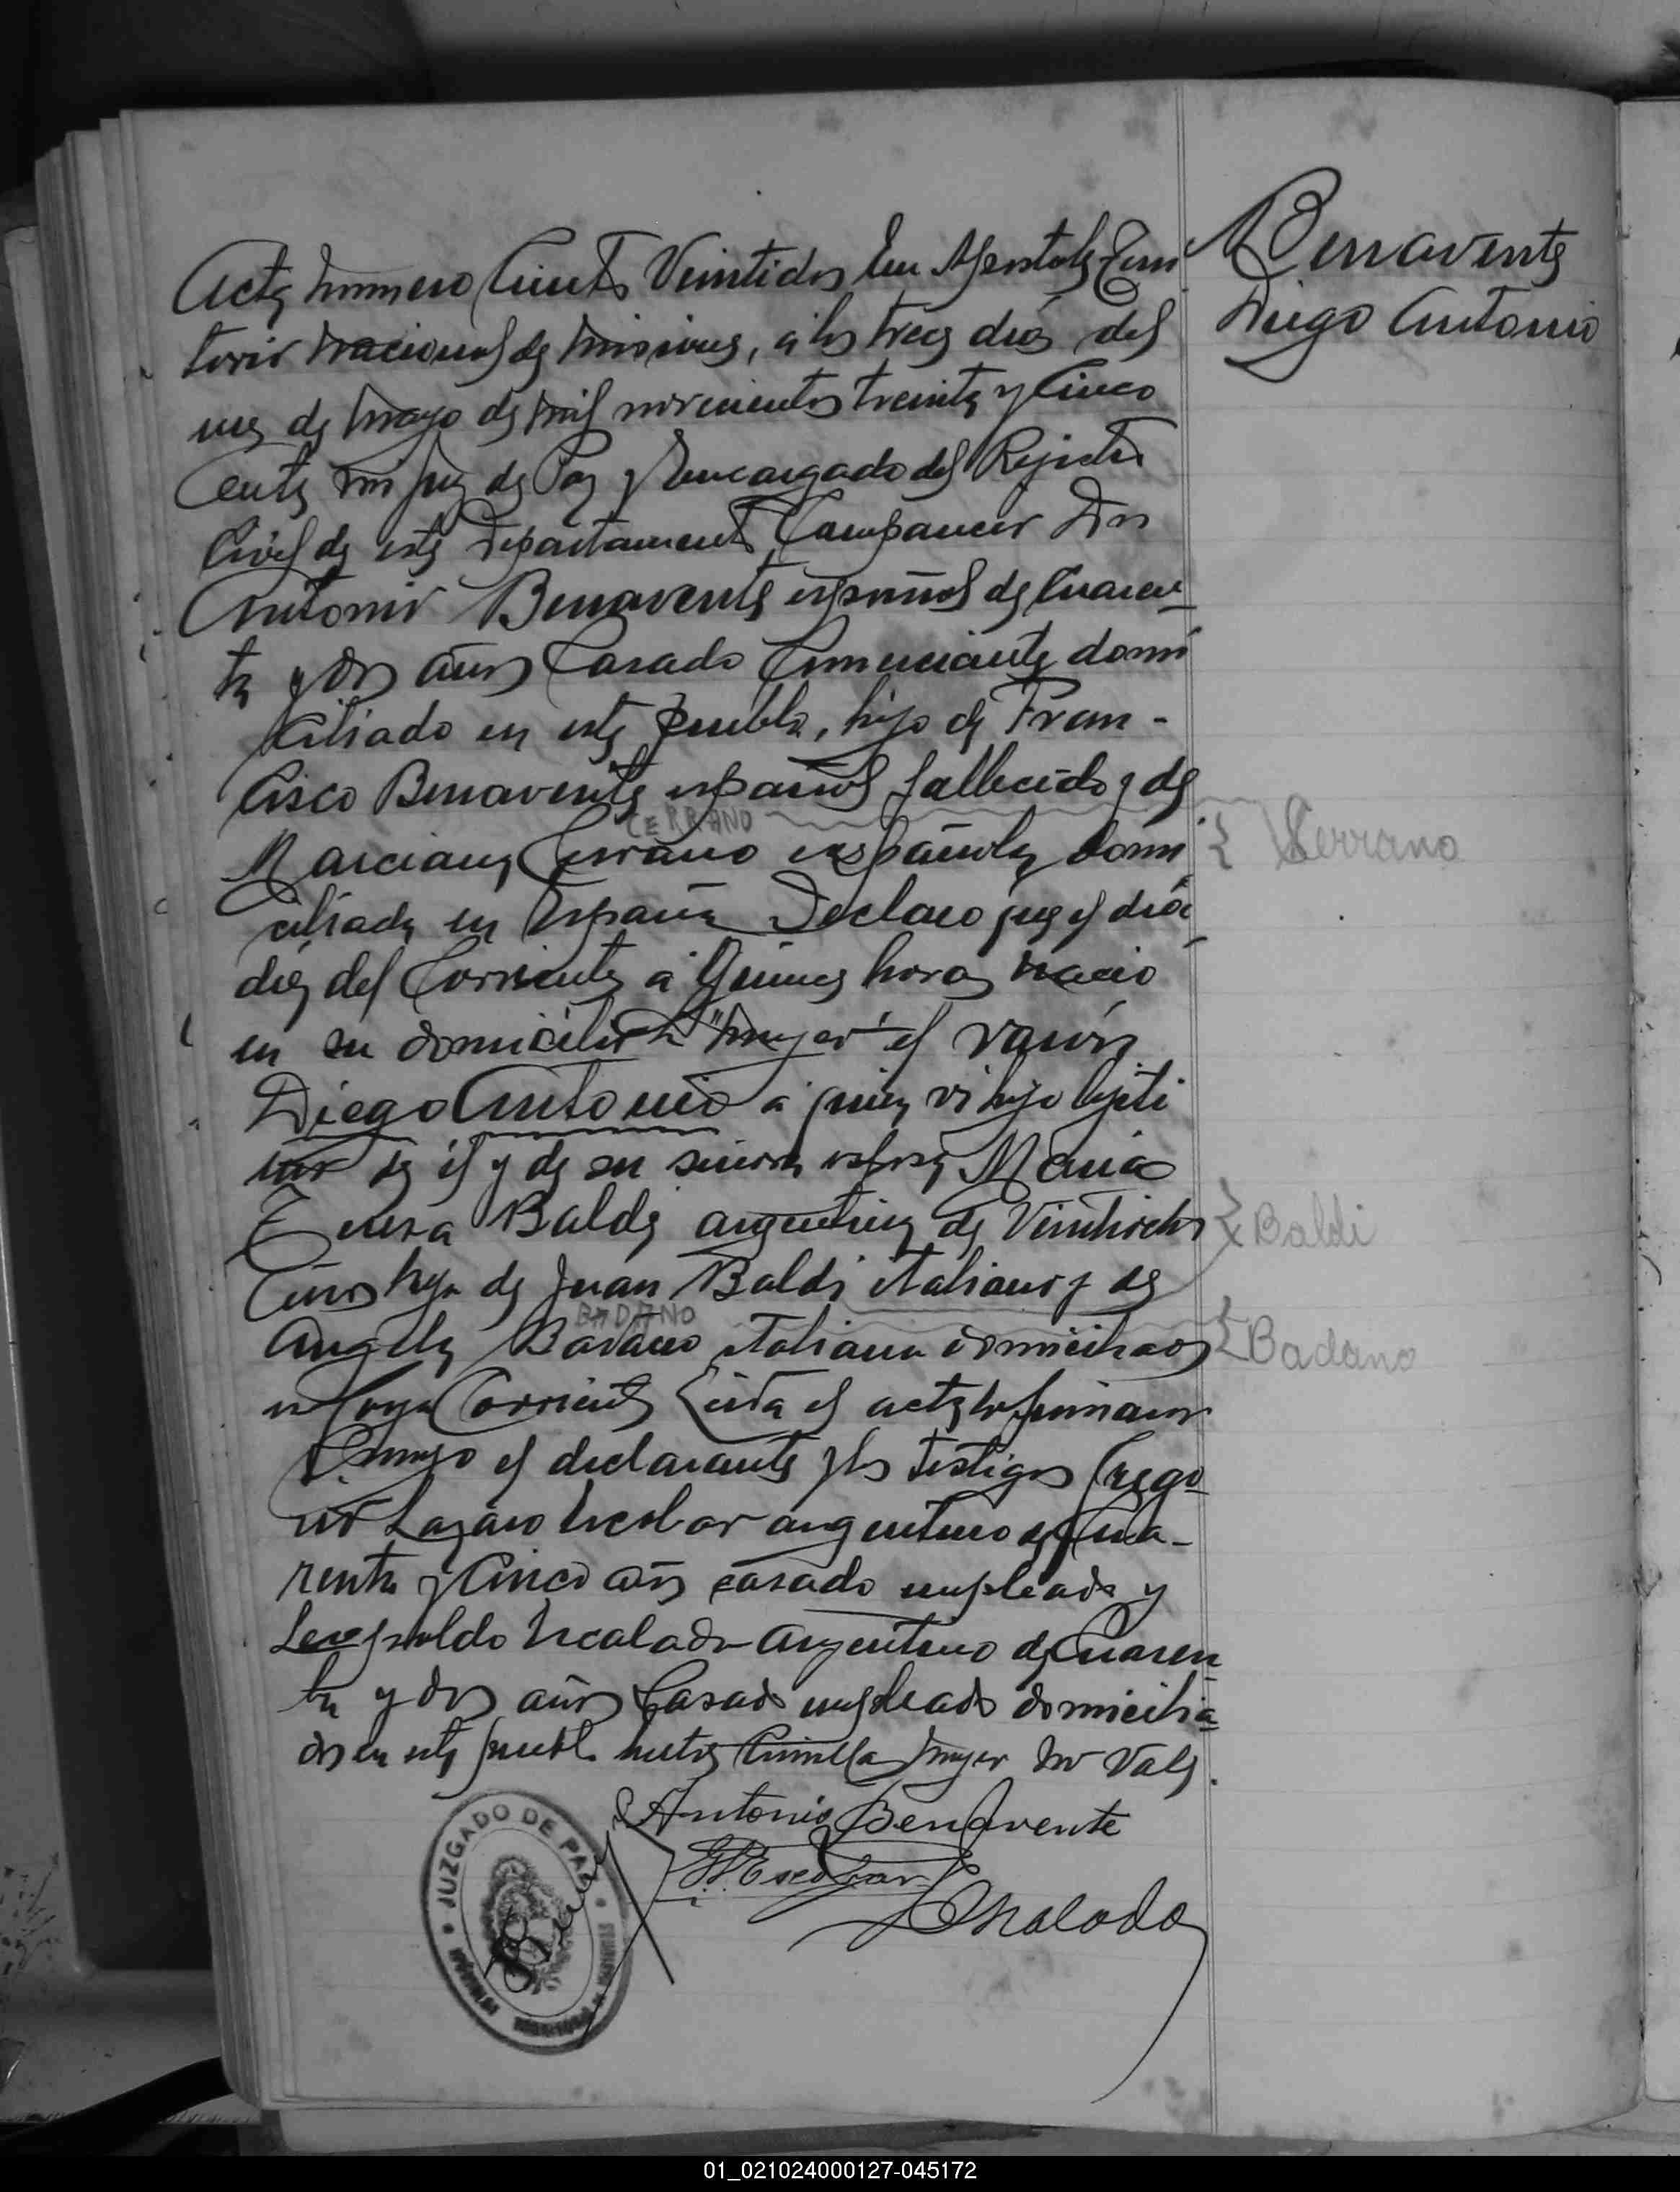 Benavente
Diego Antonio
Acta número Ciento Veintidos En Apostoles Terri
torio Nacional de Misiones, a los trece días del
mes de Mayo de Mil novecientos treinta y Cinco
Ante mi Juez de Paz y Encargado del Rejistro
Civil de este Departamento, Comparecio Don
Antonio Benavente español de Cuaren
ta y dos años Casado Comerciante domi
ciliado en este pueblo, hijo de Fran-
cisco Benavente español fallecido y de
CERRANO
Marciana Cerrano española domi
{ Serrano
ciliada en España Declaro que el día
diez del Corriente a quince horas nacio
en su domicilio "mujer" el varón
Diego Antonio a quien vi hijo lejiti
mo de él y de su señora esposa Maria
Teresa Balde argentina de Veintiocho
{ Baldi
años hija de Juan Baldi italiano y de
BADANO
Angela Badano italiana domiciliados
{ Badano
en Goya Corrientes Leida el acta la firmaron
Conmigo el declarante y los testigos Grego
rio Lazaro Escobar argentino de Cua-
renta y Cinco años casado empleado y
Leopoldo Escalada Argentino de Cuaren
ta y dos años Casado empleado domicilia
dos en este pueblo entre Comillas mujer No Vale.
Antonio Benavente
Escobar
LEscalada
JUZGADO DE PAZ
01_021024000127-045172